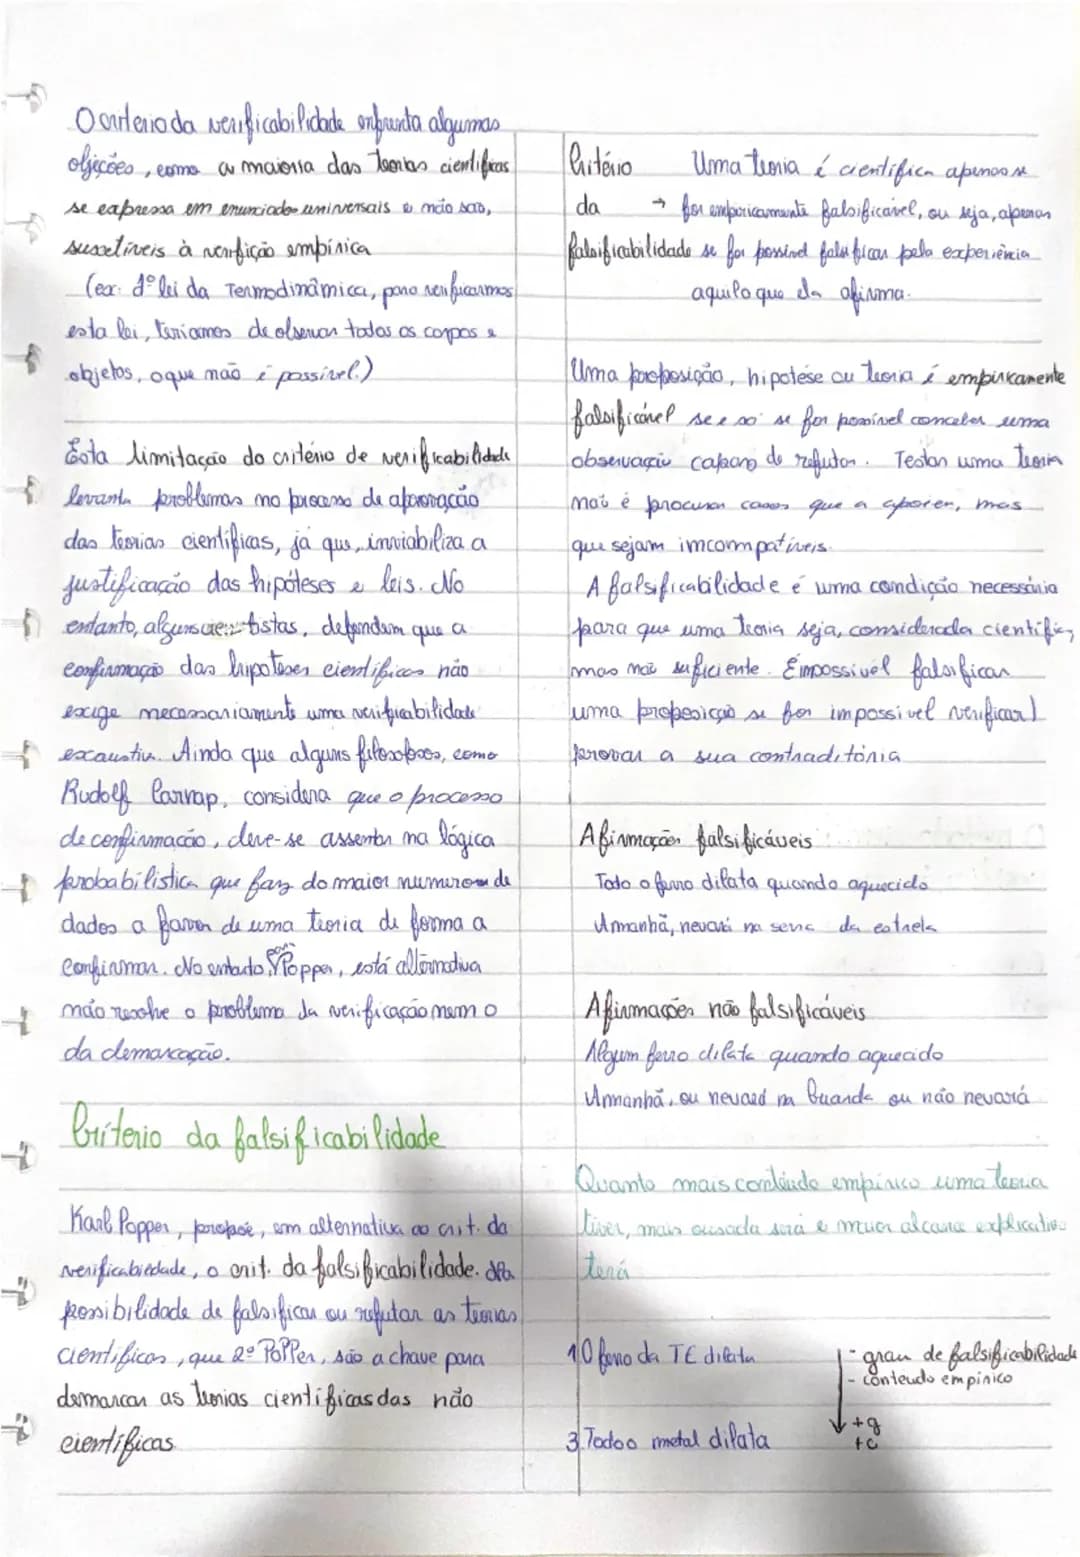 O criterio da verificabilidade enfrenta algumas
objeções, como a maioria das teorias cientificas
se expressa em enunciados universais e não são,
suscetíveis à verifição empínica
(ex: 1º lei da Termodinâmica, para verificarmos
esta lei, teriamos de observar todos os corpos e
objetos, o que não é possível.)
Esta limitação do critério de verificabilidade
levanta problemas no processo de aprovação
das teorias científicas, já que, inviabiliza a
justificação das hipóteses e leis. No
entanto, alguns cientistas, defendem que a
confirmação das hipoteses cientificas não
exige necessariamente uma verificabilidade
exaustiva. Ainda que alguns filosofos, como
Rudolf Carnap, considera que o processo
de confirmação, deve-se assentar na lógica
probabilistica que faz do maior numero de
dados a favor de uma teoria de forma a
confirmar. No entanto, para Popper, está alternativa
não resolve o problema da verificação nem o
da demarcação.
Critério da falsificabilidade
Karl Popper, propoé, em alternativa ao crit. da
verificabiedade, o crit. da falsificabilidade.
possibilidade de falsificar ou refutar as teorias
cientificas, que 2º Popper, são a chave para
demarcar as teorias científicas das não
científicas
Critério Uma teoria é cientifica apenas se
da → for empiricamente falsificável, ou seja, apenas
falsificabilidade se for possivel falsificar pela experiência
aquilo que ela afirma.
Uma proposição, hipotése ou teoria é empiricamente
falsificável se e so se for possível conceber uma
observação capaz de refutar. Testar uma teoria
não é procurar casos que a apoiem, mas
que sejam imcompatíveis.
A falsificabilidade é uma condição necessária
para que uma teoria seja, considerada científica,
mas não suficiente. É impossível falsificar
uma proposição se for impossivel verificar/
provar a sua contraditória
Afirmações falsificáveis
Todo o ferro dilata quando aquecido
Amanhã, nevará na serra da estrela
Afirmações não falsificáveis
Algum ferro dilata quando aquecido
Amanhã, ou nevará na Guarda ou não nevará
Quanto mais conteúdo empírico uma teoria
tiver, mais ousada será e maior alcance explicativo
terá
1 O ferro da TE dilata
- grau de falsificabilidade
- conteudo empirico
3. Todo o metal dilata
+g
+c